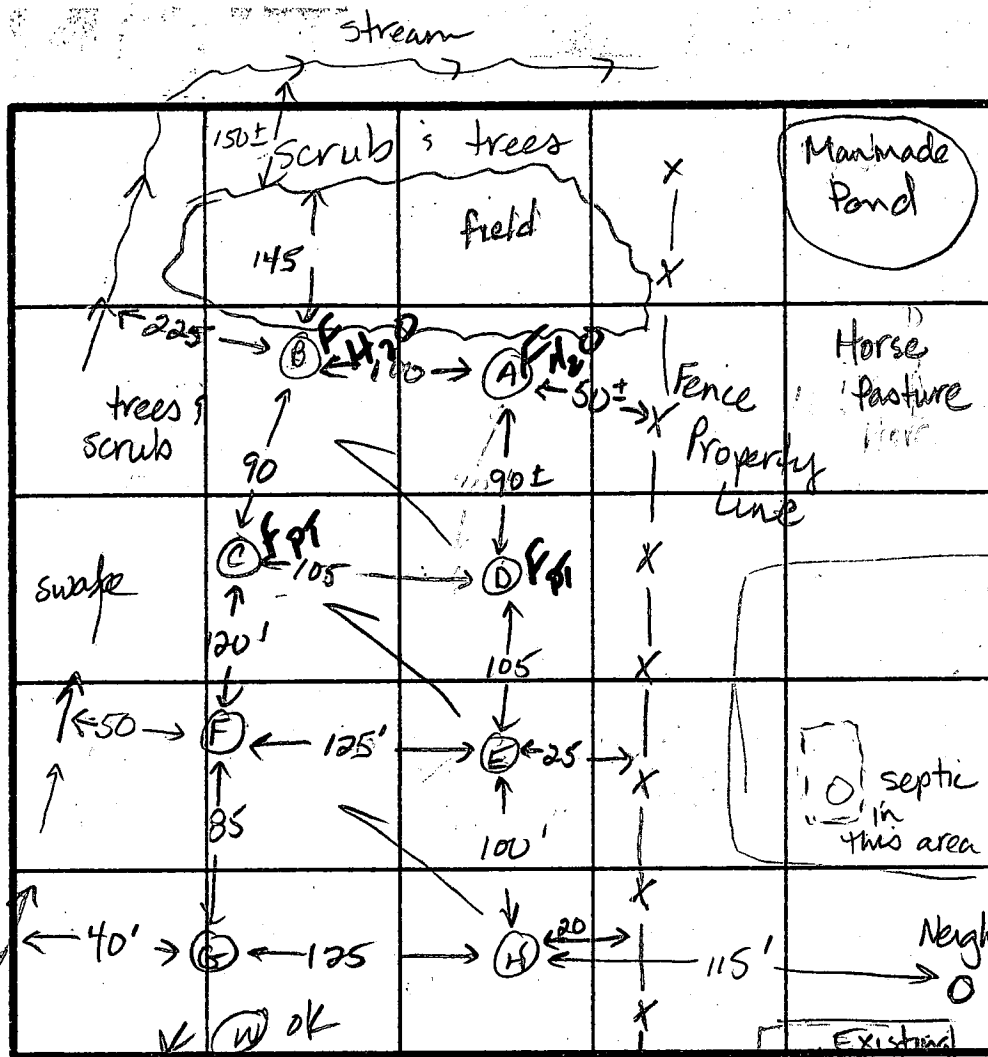 stream
150±
scrub & trees
Manmade
Pond
field
145
225
B
F H20
A
F H20
50±
Fence
Property
Line
Horse
Pasture
trees &
scrub
90
90±
C
F pf
105
D
F pf
swale
120'
105
50
F
125'
E
25
85
100'
septic
in
this area
40'
G
125
H
20
115'
Neigh
W OK
Existing